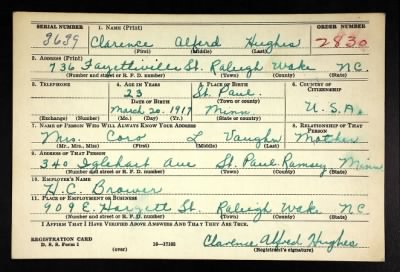 SERIAL NUMBER 1. NAME (Print) ORDER NUMBER
3639 Clarence Alferd Hughes 2830
(First) (Middle) (Last)
2. ADDRESS (Print)
736 Fayettiville St. Raleigh Wake N.C.
(Number and street or R. F. D. number) (Town) (County) (State)
3. TELEPHONE 4. AGE IN YEARS 5. PLACE OF BIRTH 6. COUNTRY OF CITIZENSHIP
23 St. Paul
DATE OF BIRTH (Town or county)
March 20. 1917 Minn U.S.A.
(Exchange) (Number) (Mo.) (Day) (Yr.) (State or country)
7. NAME OF PERSON WHO WILL ALWAYS KNOW YOUR ADDRESS 8. RELATIONSHIP OF THAT PERSON
Mrs. Cora L Vaughn Mother
(Mr., Mrs., Miss) (First) (Middle) (Last)
9. ADDRESS OF THAT PERSON
340 Iglehart Ave St. Paul Ramsey Minn
(Number and street or R. F. D. number) (Town) (County) (State)
10. EMPLOYER'S NAME
H.C. Brower
11. PLACE OF EMPLOYMENT OR BUSINESS
909 E. Hargett St. Raleigh Wake N.C.
(Number and street or R. F. D. number) (Town) (County) (State)
I AFFIRM THAT I HAVE VERIFIED ABOVE ANSWERS AND THAT THEY ARE TRUE.
REGISTRATION CARD
D. S. S. Form 1 (over) 16—17105 Clarence Alfred Hughes
(Registrant's signature)